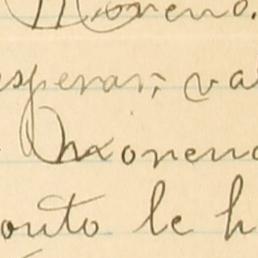 Moreno.
esperar, va
Moreno
onto le h